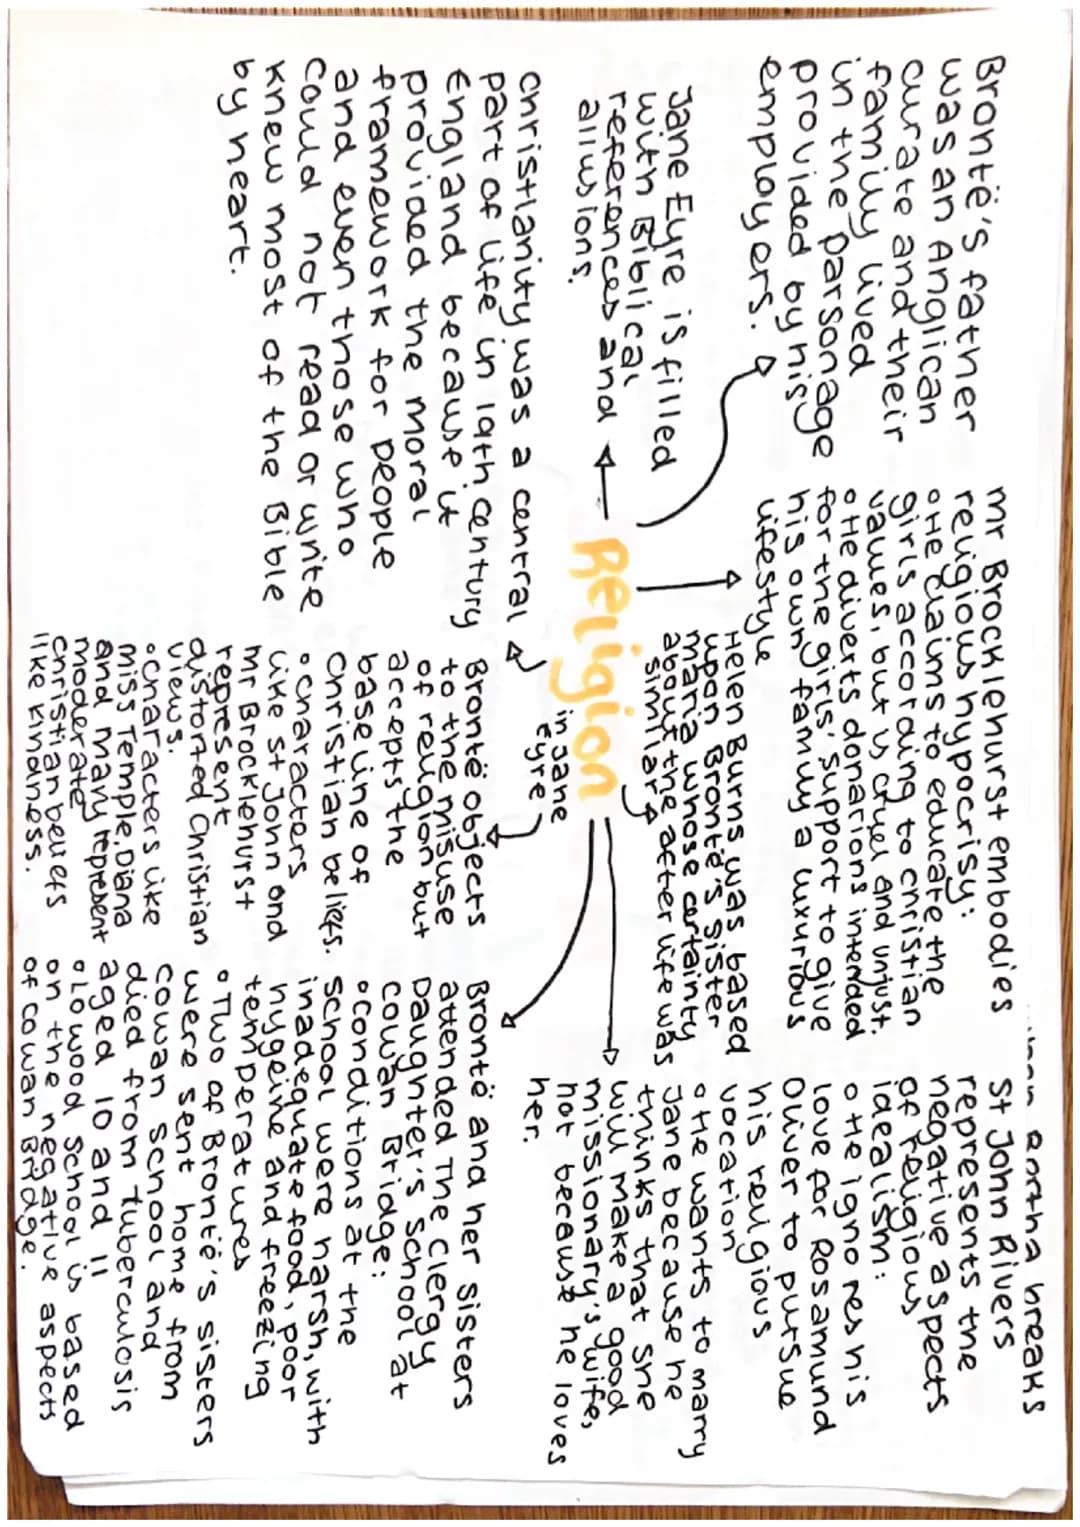 Bertha breaks
Brontë's father
was an Anglican
curate and their
family lived
in the parsonage
provided by hisge
employers.
Mr Brocklehurst embodies
religious hypocrisy:
∘ He claims to educate the
girls according to christian
values, but is cruel and unjust.
∘ He diverts donations intended
for the girls' support to give
his own, family a luxurious
lifestyle
St John Rivers
represents the
negative aspects
of religious
idealism:
∘ He ignores his
love for Rosamund
Oliver to pursue
his religious
vocation
∘ He wants to marry
Jane because he
thinks that she
will make a good
missionary's wife,
not because he loves
her.
Jane Eyre is filled
with Biblical
references and
allusions.
Religion
Helen Burns was based
upon Brontë's sister
Maria whose certainty
about the afterlife was
similar
Christianity was a central
part of life in 19th century
England because it
provided the moral
framework for people
and even those who
could not read or write
knew most of the Bible
by heart.
in Jane
Eyre
Brontë objects
to the misuse
of religion but
accepts the
baseline of
Christian beliefs.
∘ characters
like St John and
Mr Brocklehurst
represent
distorted Christian
views.
∘ characters like
Miss Temple, Diana
and Mary represent
moderate
Christian beliefs
like kindness.
Brontë and her sisters
attended The Clergy
Daughter's School at
Cowan Bridge:
∘ conditions at the
school were harsh, with
inadequate food, poor
hygeine and freezing
temperatures
∘ Two of Brontë's sisters
were sent home from
Cowan School and
died from tuberculosis
aged 10 and 11
∘ Lowood School is based
on the negative aspects
of Cowan Bridge.